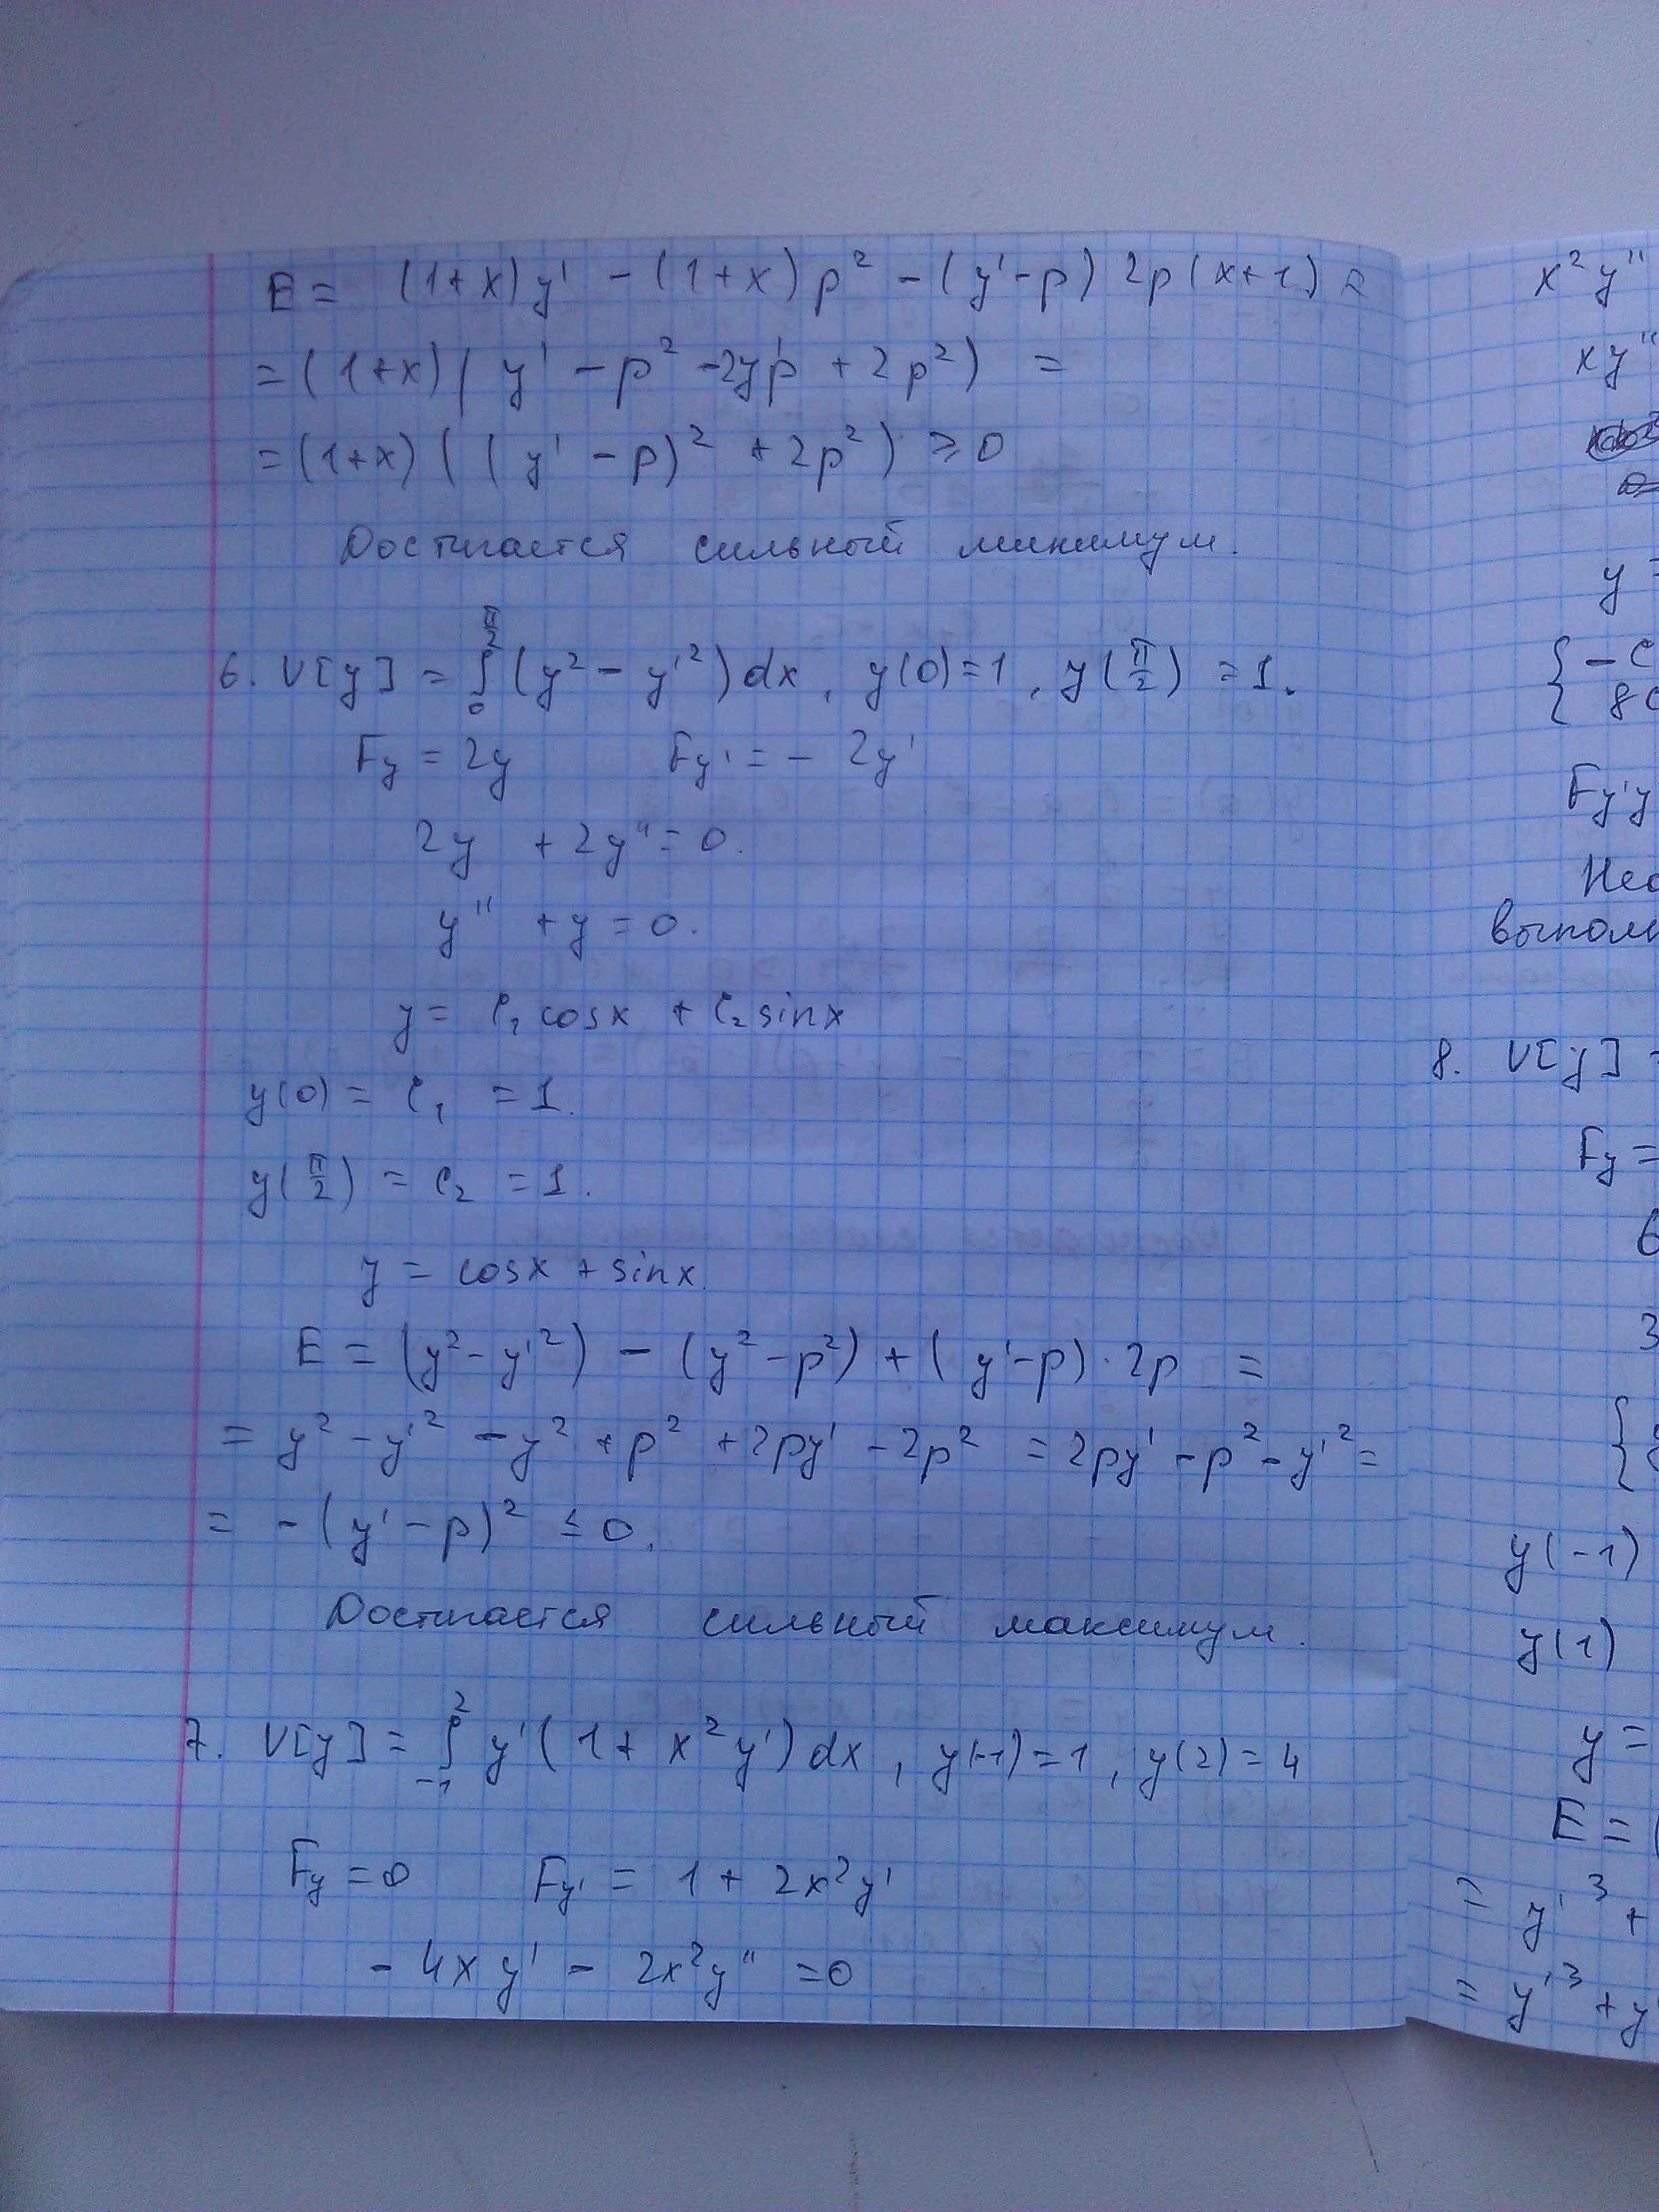 E = (1+x)y' - (1+x)p² - (y'-p)2p(x+1) =
= (1+x)(y' - p² - 2y'p + 2p²) =
= (1+x)((y' - p)² + 2p²) ≥ 0
Достигается сильный минимум.
6. V[y] = ∫₀^(π/2) (y² - y'²)dx, y(0)=1, y(π/2) = 1.
Fy = 2y Fy' = - 2y'
2y + 2y'' = 0.
y'' + y = 0.
y = C₁ cosx + C₂ sinx
y(0) = C₁ = 1.
y(π/2) = C₂ = 1.
y = cosx + sinx.
E = (y² - y'²) - (y² - p²) + (y' - p)·2p =
= y² - y'² - y² + p² + 2py' - 2p² = 2py' - p² - y'² =
= - (y' - p)² ≤ 0.
Достигается сильный максимум.
7. V[y] = ∫₋₁² y'(1 + x²y')dx, y(-1) = 1, y(2) = 4
Fy = 0 Fy' = 1 + 2x²y'
- 4xy' - 2x²y'' = 0
x²y''
xy''
y =
{ -C
8C
Fy'y
выпол
8. V[y] =
Fy =
6
3
{
y(-1)
y(1)
y =
E = (
= y'³ +
= y'³ + y